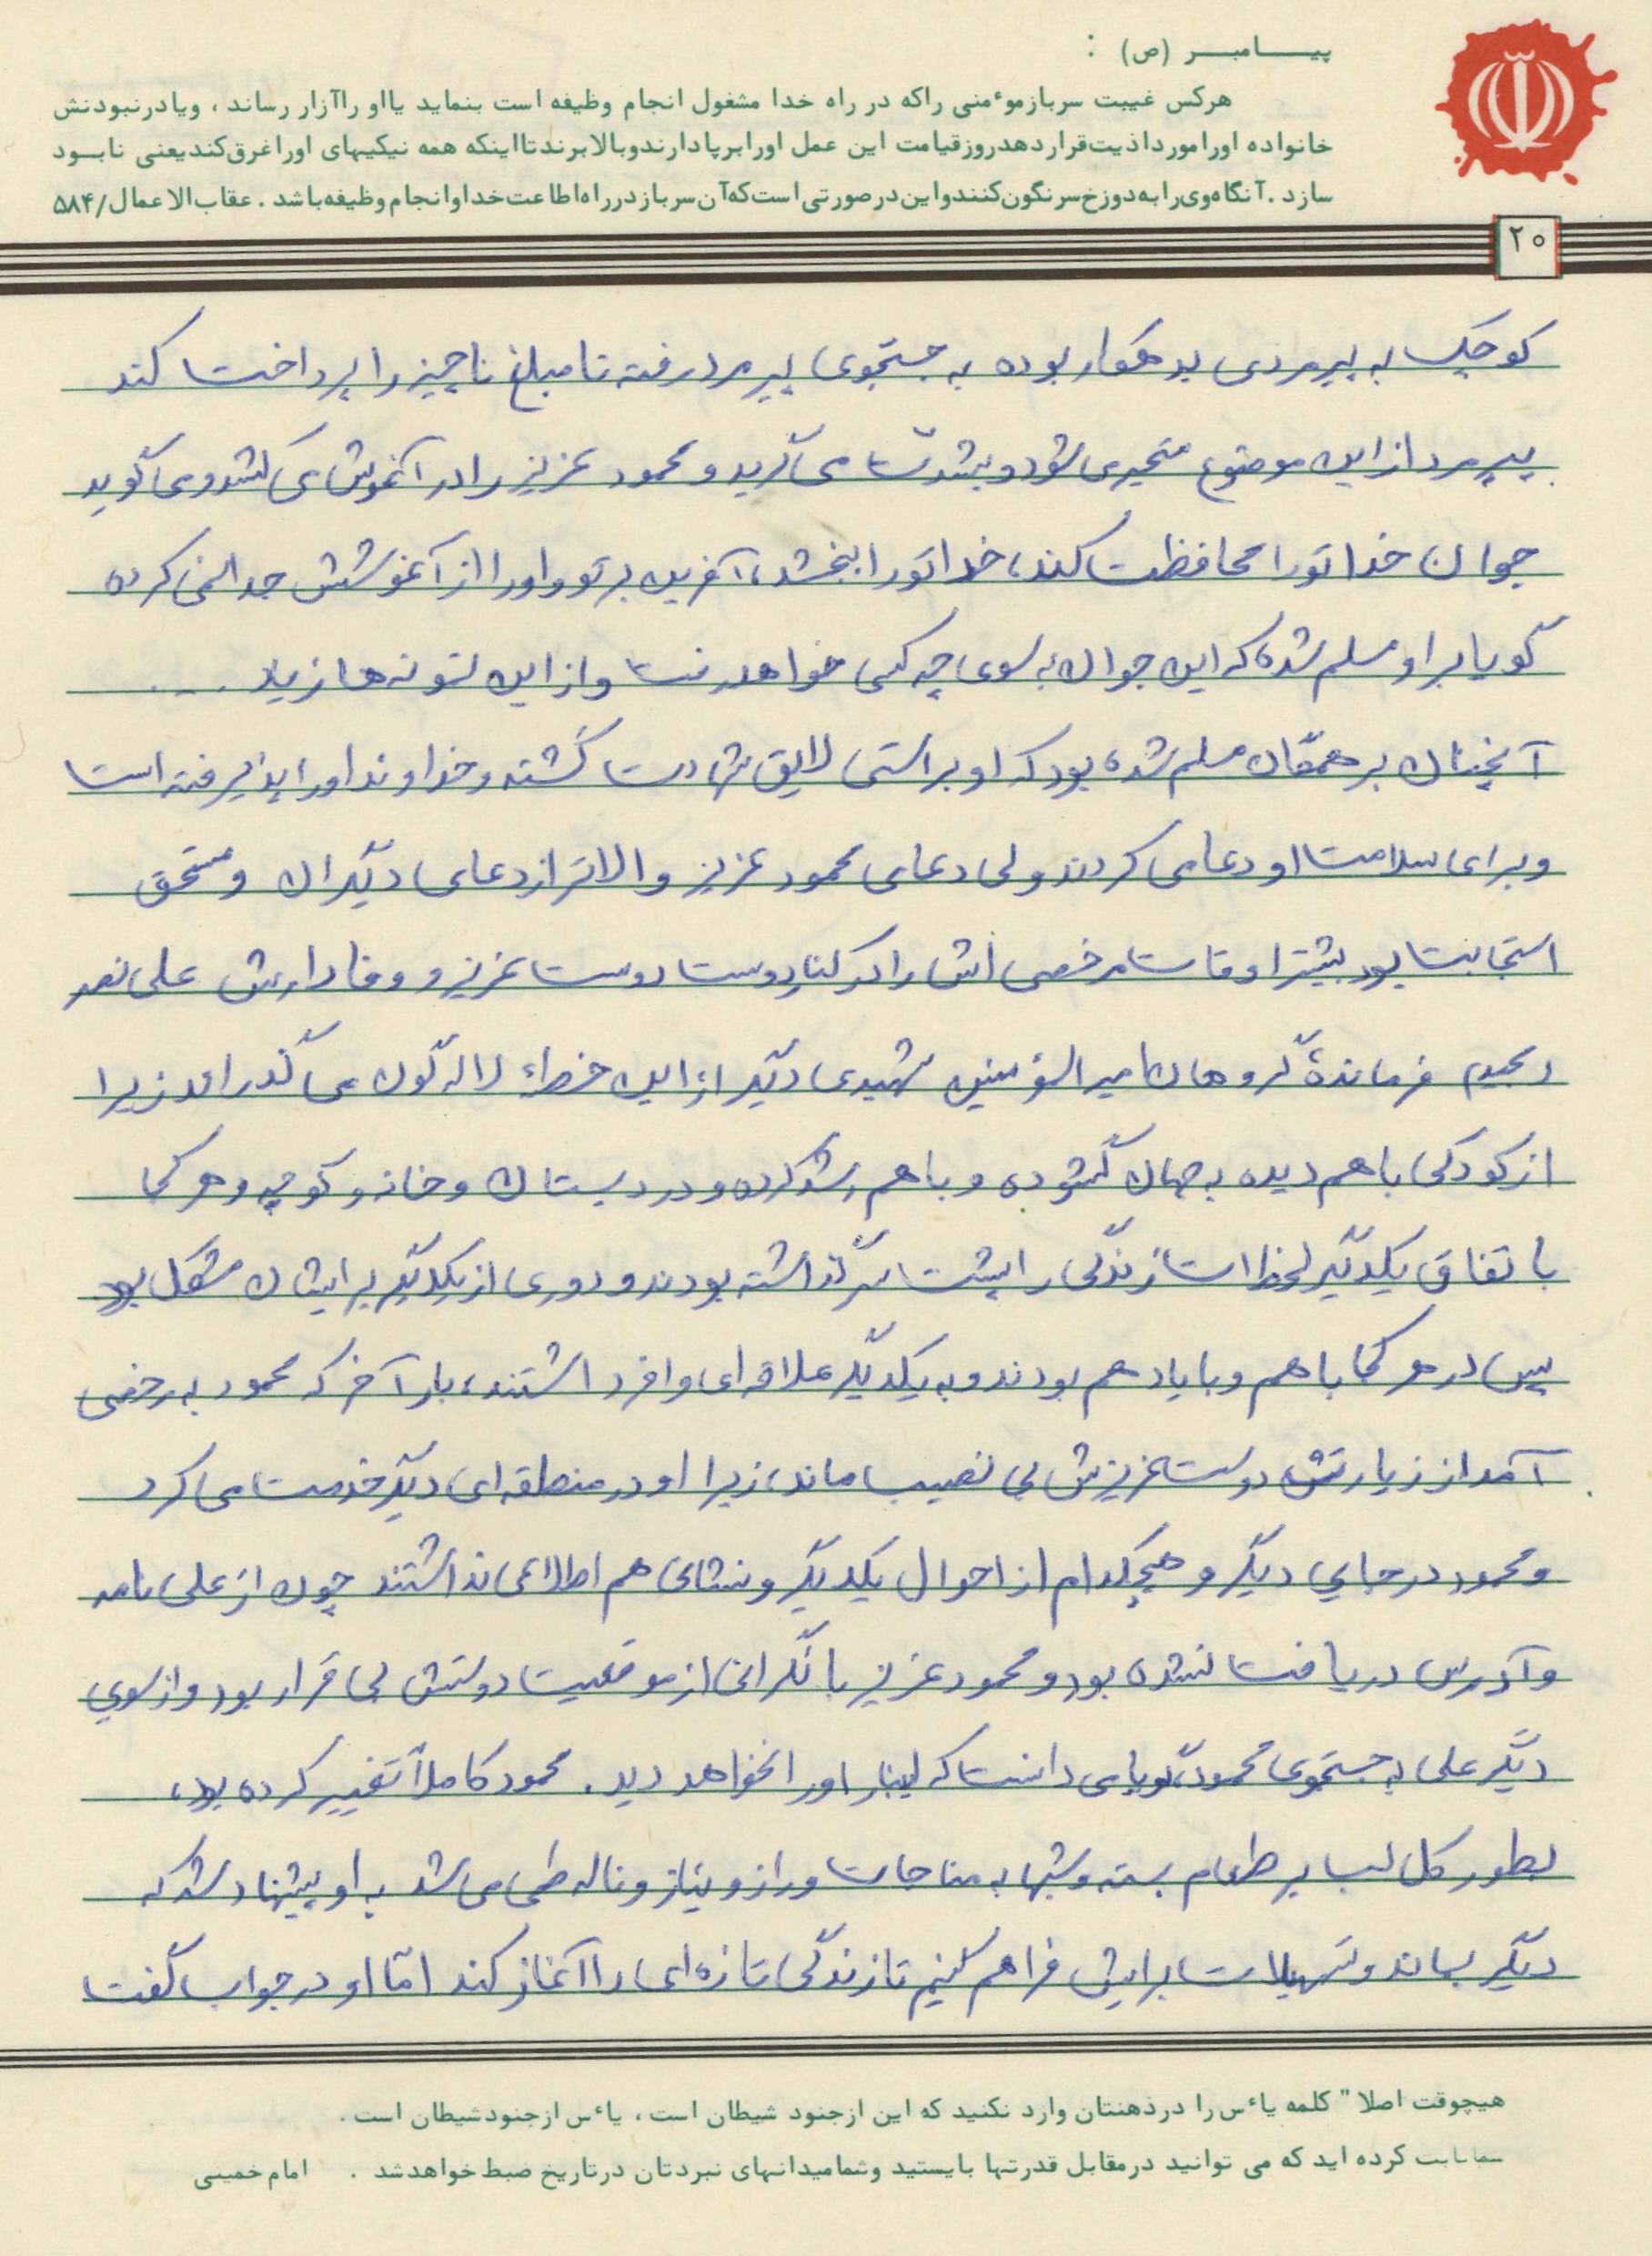 پیـــامبـــر (ص) :
هرکس غیبت سرباز موٴمنی راکه در راه خدا مشغول انجام وظیفه است بنماید یااو راآزار رساند ، ویادرنبودنش
خانواده اورامورداذیت‌قراردهدروزقیامت این عمل اورابرپادارندوبالابرندتااینکه همه نیکیهای اوراغرق‌کندیعنی نابـود
سازد .آنگاه‌وی‌رابه‌دوزخ‌سرنگون‌کنندواین‌درصورتی‌است‌که‌آن‌سربازدرراه‌اطاعت‌خداوانجام‌وظیفه‌باشد . عقاب‌الاعمال/۵۸۴
۲۰
کوچک به پیرمردی بدهکار بوده به جستجوی پیرمرد رفته تا مبلغ ناچیز را پرداخت کند
پیرمرد از این موضوع متحیر می شود و بشدت می گرید و محمود عزیز را در آغوش می کشد و می گوید
جوان خدا تو را محافظت کند، خدا تو را ببخشد، آفرین بر تو و او را از آغوشش جدا نمی کرده
گویا بر او مسلم شده که این جوان به سوی چه کسی خواهد رفت و از این نمونه ها زیاد ....
آنچنان بر همگان مسلم شده بود که او براستی لایق شهادت گشته و خداوند او را پذیرفته است
و برای سلامت او دعا می کردند ولی دعای محمود عزیز والاتر از دعای دیگران و مستحق
استجابت بود بیشتر اوقات مرخصی اش را در کنار دوست دوست عزیز و وفادارش علی نصر
فرماندۀ گروهان امیرالمؤمنین شهیدی دیگر از این خطۀ لاله گون می گذراند زیرا
از کودکی با هم دیده به جهان گشوده و با هم رشد کرده و در دبستان و خانه و کوچه و هر کجا
با تفاق یکدیگر لحظات زندگی را پشت سر گذاشته بودند و دوری از یکدیگر برایشان مشکل بود
پس در هر کجا با هم و با یاد هم بودند و به یکدیگر علاقه ای وافر داشتند، بار آخر که محمود به مرخصی
آمد از زیارتش دوست عزیزش بی نصیب ماند، زیرا او در منطقه ای دیگر خدمت می کرد
و محمود در جایی دیگر و هیچکدام از احوال یکدیگر و نشانی هم اطلاعی نداشتند چون از علی نامه
و آدرس دریافت نشده بود و محمود عزیز با نگرانی از موقعیت دوستش بی قرار بود و از سوی
دیگر علی به جستجوی محمود، گویا می دانست که اینبار او را نخواهد دید . محمود کاملاً تغییر کرده بود،
بطور کل لب بر طعام بسته و شبها به مناجات و راز و نیاز و ناله طی می شد به او پیشنهاد شد که
دیگر بماند و تسهیلات برایش فراهم کنیم تا زندگی تازه ای را آغاز کند امّا او در جواب گفت
هیچوقت اصلا" کلمه یاٴس را درذهنتان وارد نکنید که این ازجنود شیطان است ، یاٴس ازجنودشیطان است .
کرده اید که می توانید درمقابل قدرتها بایستید وشمامیدانهای نبردتان درتاریخ ضبط خواهدشد . امام خمینی